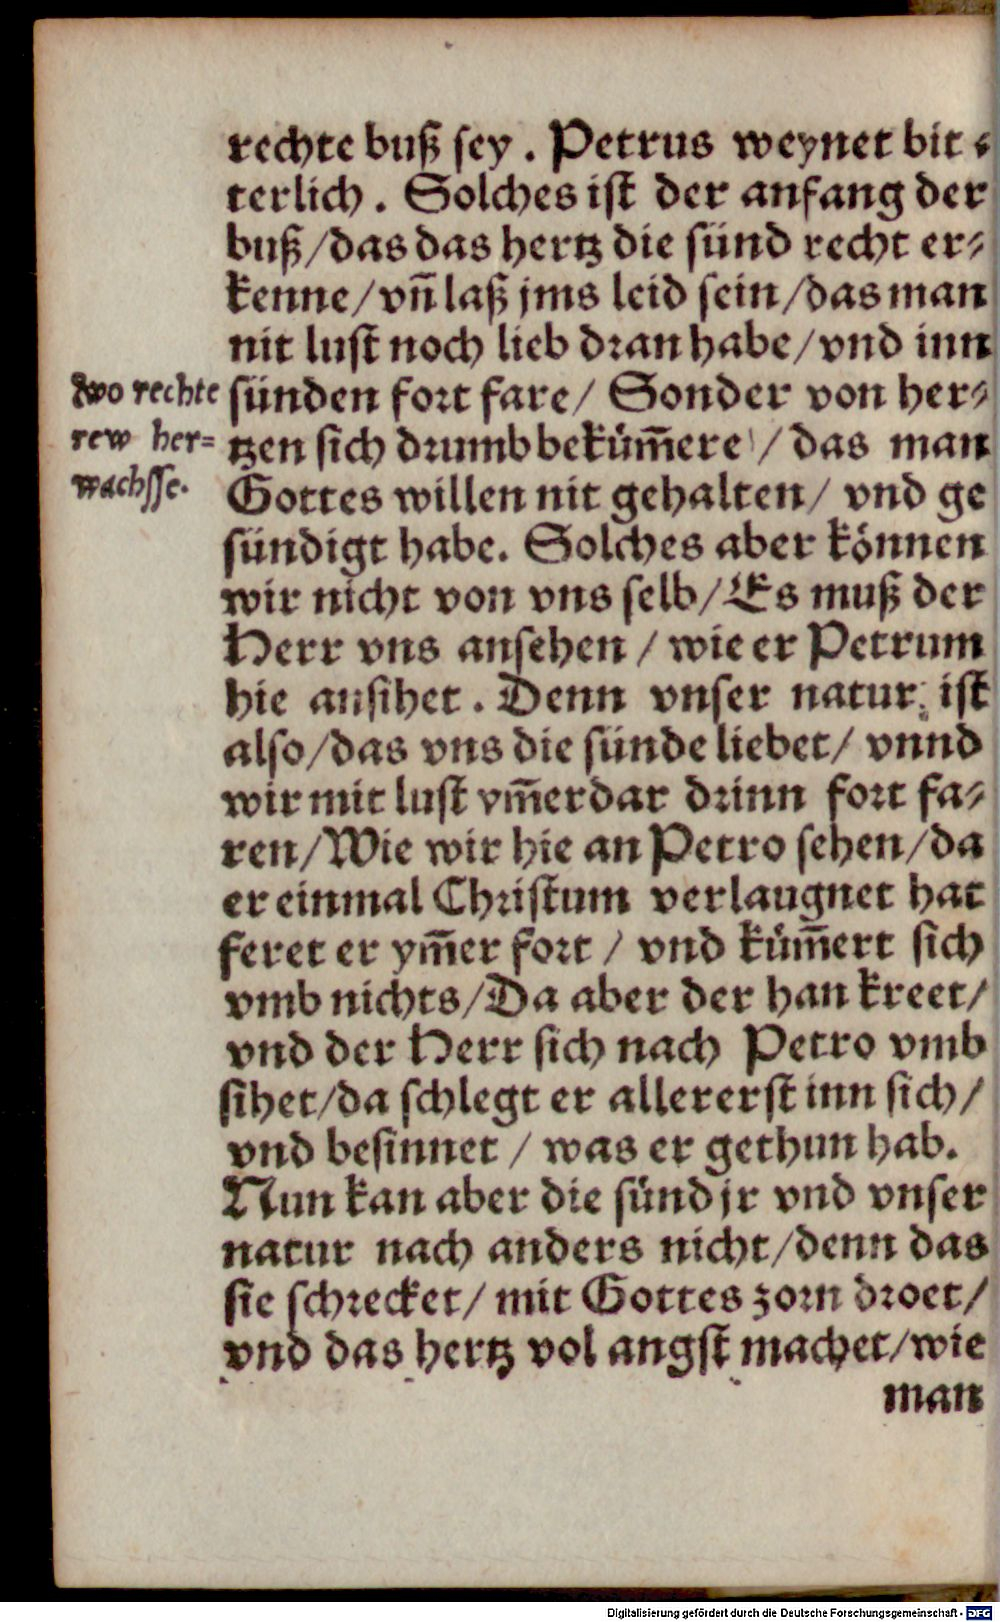 rechte buß sey. Petrus weynet bit⸗
terlich. Solches ist der anfang der
buß/das das hertz die sünd recht er⸗
kenne/vñ laß jms leid sein/das man
nit lust noch lieb dran habe/vnd inn
sünden fort fare/ Sonder von her⸗
tzen sich drumb beküm̃ere/ das man
Gottes willen nit gehalten/ vnd ge
sündigt habe. Solches aber können
wir nicht von vns selb/Es muß der
Herr vns ansehen/ wie er Petrum
hie ansihet. Denn vnser natur ist
also/das vns die sünde liebet/ vnnd
wir mit lust ym̃erdar drinn fort fa⸗
ren/Wie wir hie an Petro sehen/da
er einmal Christum verlaugnet hat
feret er ym̃er fort/ vnd küm̃ert sich
vmb nichts/Da aber der han kreet/
vnd der Herr sich nach Petro vmb
sihet/da schlegt er allererst inn sich/
vnd besinnet/ was er gethun hab.
Nun kan aber die sünd jr vnd vnser
natur nach anders nicht/denn das
sie schrecket/ mit Gottes zorn droet/
vnd das hertz vol angst machet/wie
man
Wo rechte
rew her=
wachsse.
Digitalisierung gefördert durch die Deutsche Forschungsgemeinschaft - DFG